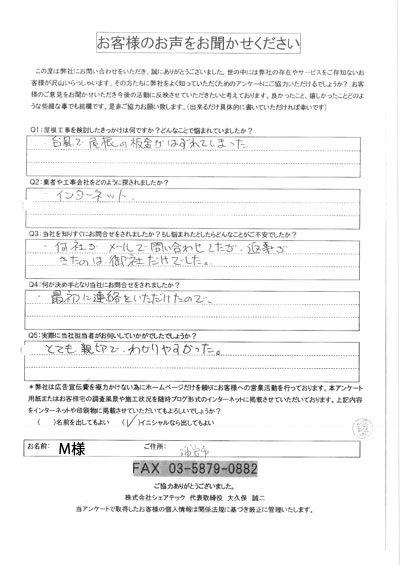 お客様のお声をお聞かせください
この度は弊社にお問い合わせをいただき、誠にありがとうございました。世の中には弊社の存在やサービスをご存知ないお
客様が沢山いらっしゃいます。その方たちに弊社をよく知っていただくためのアンケートにご協力いただけるでしょうか？お客
様のご意見をお聞かせいただき今後の活動に反映させていただきたいと考えております。良かったこと、嬉しかったことどのよ
うな些細な事でも結構です。是非ご協力お願い致します。（出来るだけ具体的に書いていただければ幸いです）
Q1：屋根工事を検討したきっかけは何ですか？どんなことで悩まれていましたか？
・台風で屋根の板金がはずれてしまった
Q2：業者や工事会社をどのように探されましたか？
・インターネット、
Q3：当社を知りすぐにお問合せをされましたか？もし悩まれたとしたらどんなことがご不安でしたか？
・何社かメールで問い合わせしたが、返事が
きたのは、御社だけでした。
Q4：何が決め手となり当社にお問合せをされましたか？
・最初に連絡をいただけたので。
Q5：実際に当社担当者がお伺いしていかがでしたでしょうか？
とても親切で、わかりやすかった。
＊弊社は広告宣伝費を極力かけない為にホームページだけを頼りにお客様への営業活動を行っております。本アンケート
用紙またはお客様宅の調査風景や施工状況を随時ブログ形式のインターネットに掲載させていただいております。上記内容
をインターネットや印刷物に掲載させていただいてもよろしいでしょうか？
（　）名前を出してもよい　（✓）イニシャルなら出してもよい
お名前： M様 ご住所： 浦安市
FAX 03-5879-0882
ご協力ありがとうございました。
株式会社シェアテック 代表取締役 大久保 誠二
当アンケートで取得したお客様の個人情報は関係法規に基づき厳正に管理いたします。